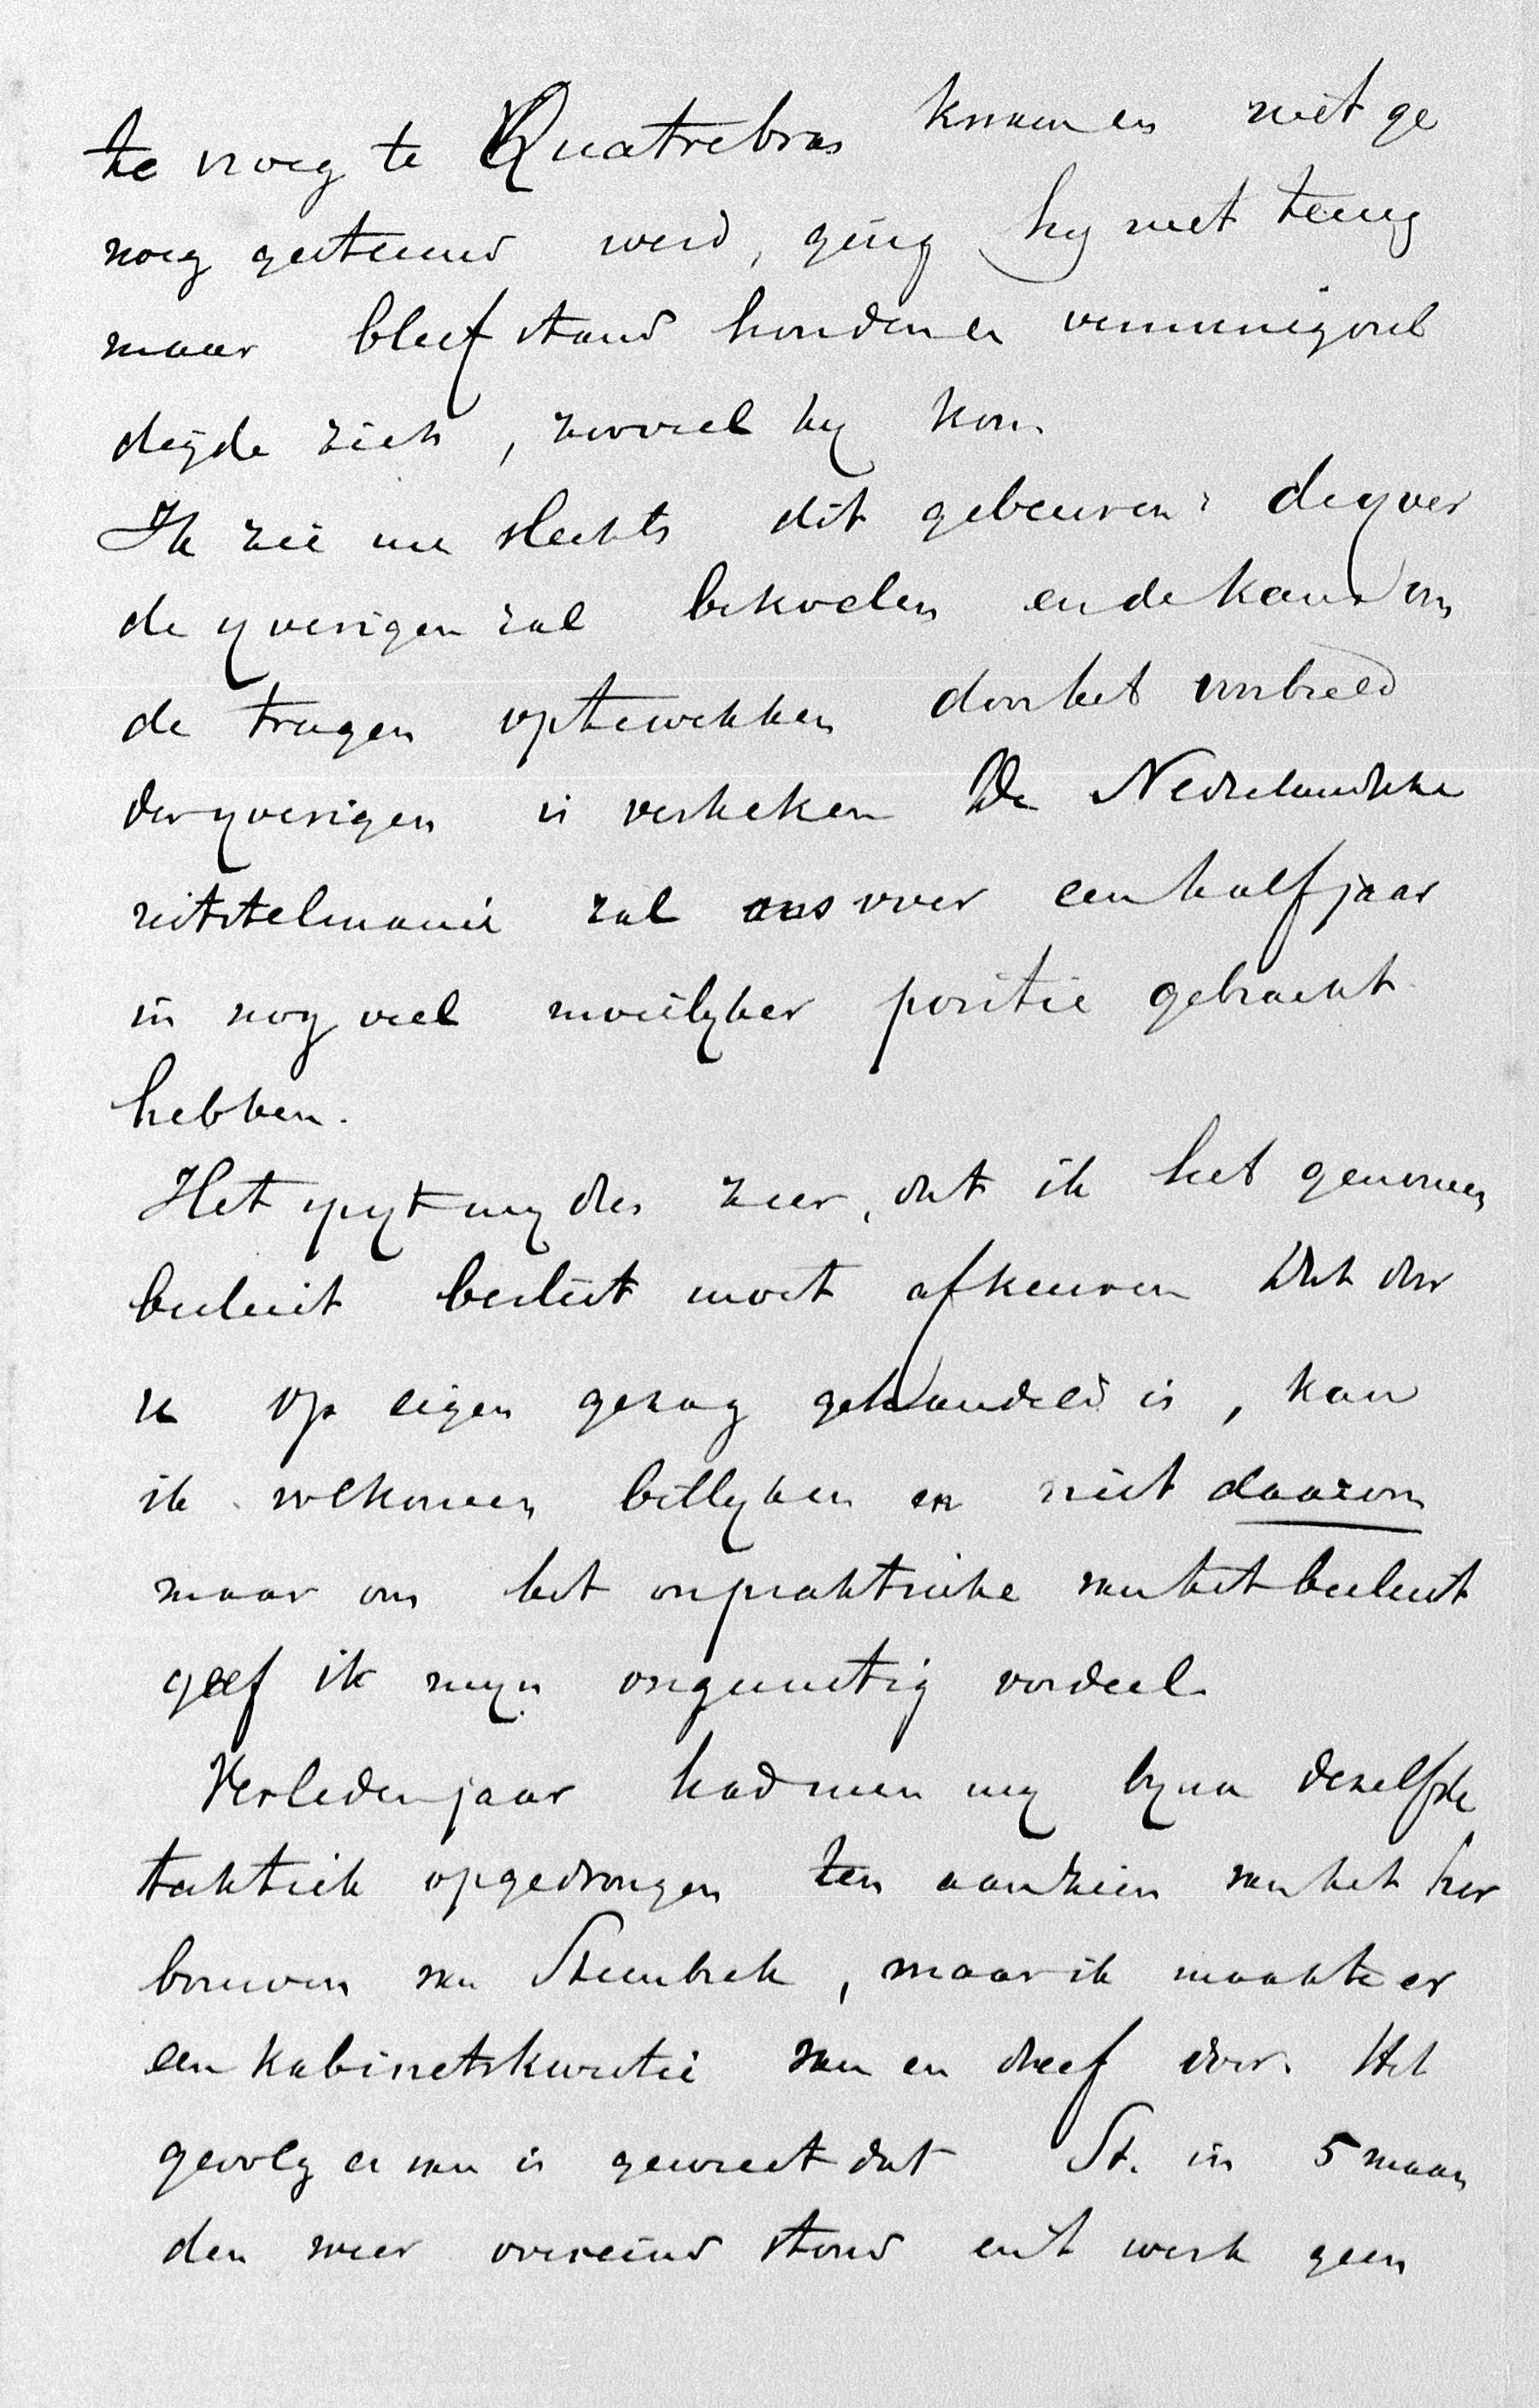 te vroeg te Quatrebras kwam en niet ge
noeg gesteund werd, ging hy niet terug
maar bleef stand houden en vermenigvul
digde zich, zooveel hy kon.
Ik zie nu slechts dit gebeuren: de yver
de yverigen zal bekoelen en de kans om
de tragen optewekken door het voorbeeld
der yverigen is verkeken De Nederlandsche
uitstelmanie zal ons over een half jaar
in nog veel moeilyker positie gebracht
hebben.
Het spyt my dus zeer, dat ik het genomen
besluit besluit moet afkeuren Dat door
u op eigen gezag gehandeld is, kan
ik volkomen billyken en niet daarom
maar om het onpraktische van het besluit
geef ik myn ongunstig oordeel.
Verleden jaar had men my byna dezelfde
taktiek opgedrongen ten aanzien van het her
bouwen van Steenbeek, maar ik maakte er
een kabinetskwestie van en dreef door. Het
gevolg er van is geweest dat St. in 5 maan
den weer overeind stond en 't werk geen